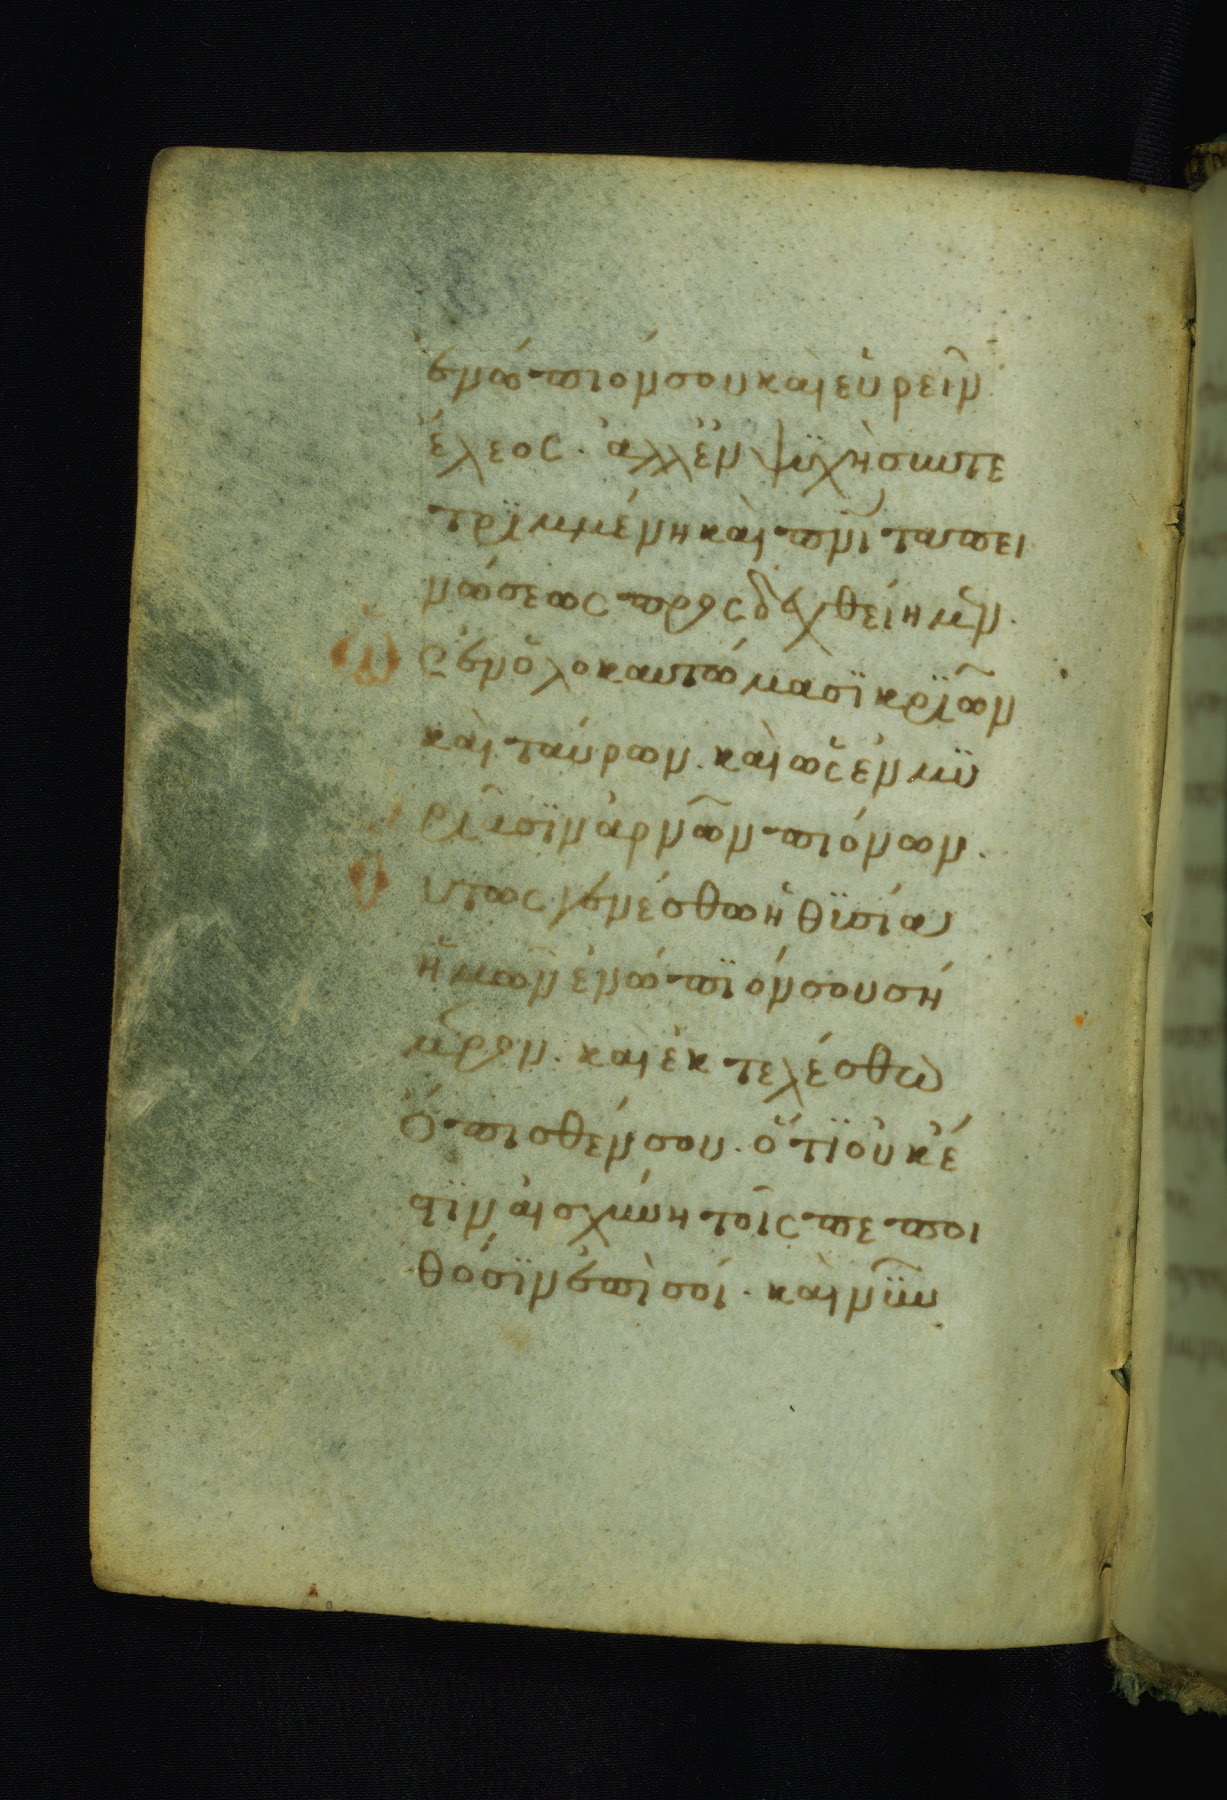 ἐνώπιόν σου καὶ εὑρεῖν
ἔλεος· ἀλλ’ ἐν ψϋχῆ συντε
τριμμένη καὶ πνι ταπει
νώσεως προσδεχθείημεν·
ὡς ἐν ὁλοκαυτώμασϊ κριῶν
καὶ ταύρων. καὶ ὡς ἐν μϋ
ριάσϊν ἀρνῶν πιόνων·
οὕτως γενέσθω ἡ θϋσία
ἡμῶν ἐνώπϊόν σου σή
μερον. καὶ ἐκτελέσαι
ὄπισθέν σου. ὅτϊ οὐκ ἔ
στϊν αἰσχύνη τοῖς πεποι
θόσϊν ἐπὶ σοί. καὶ νῦν